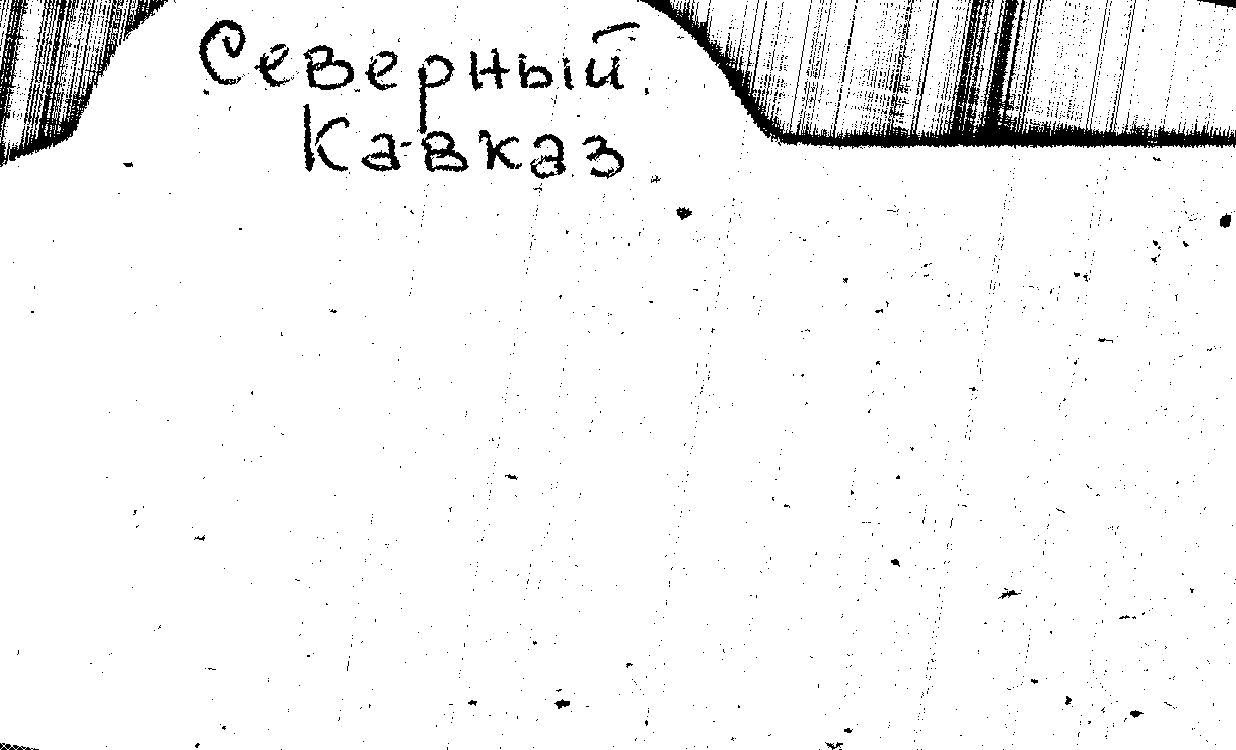 Северный
Кавказ